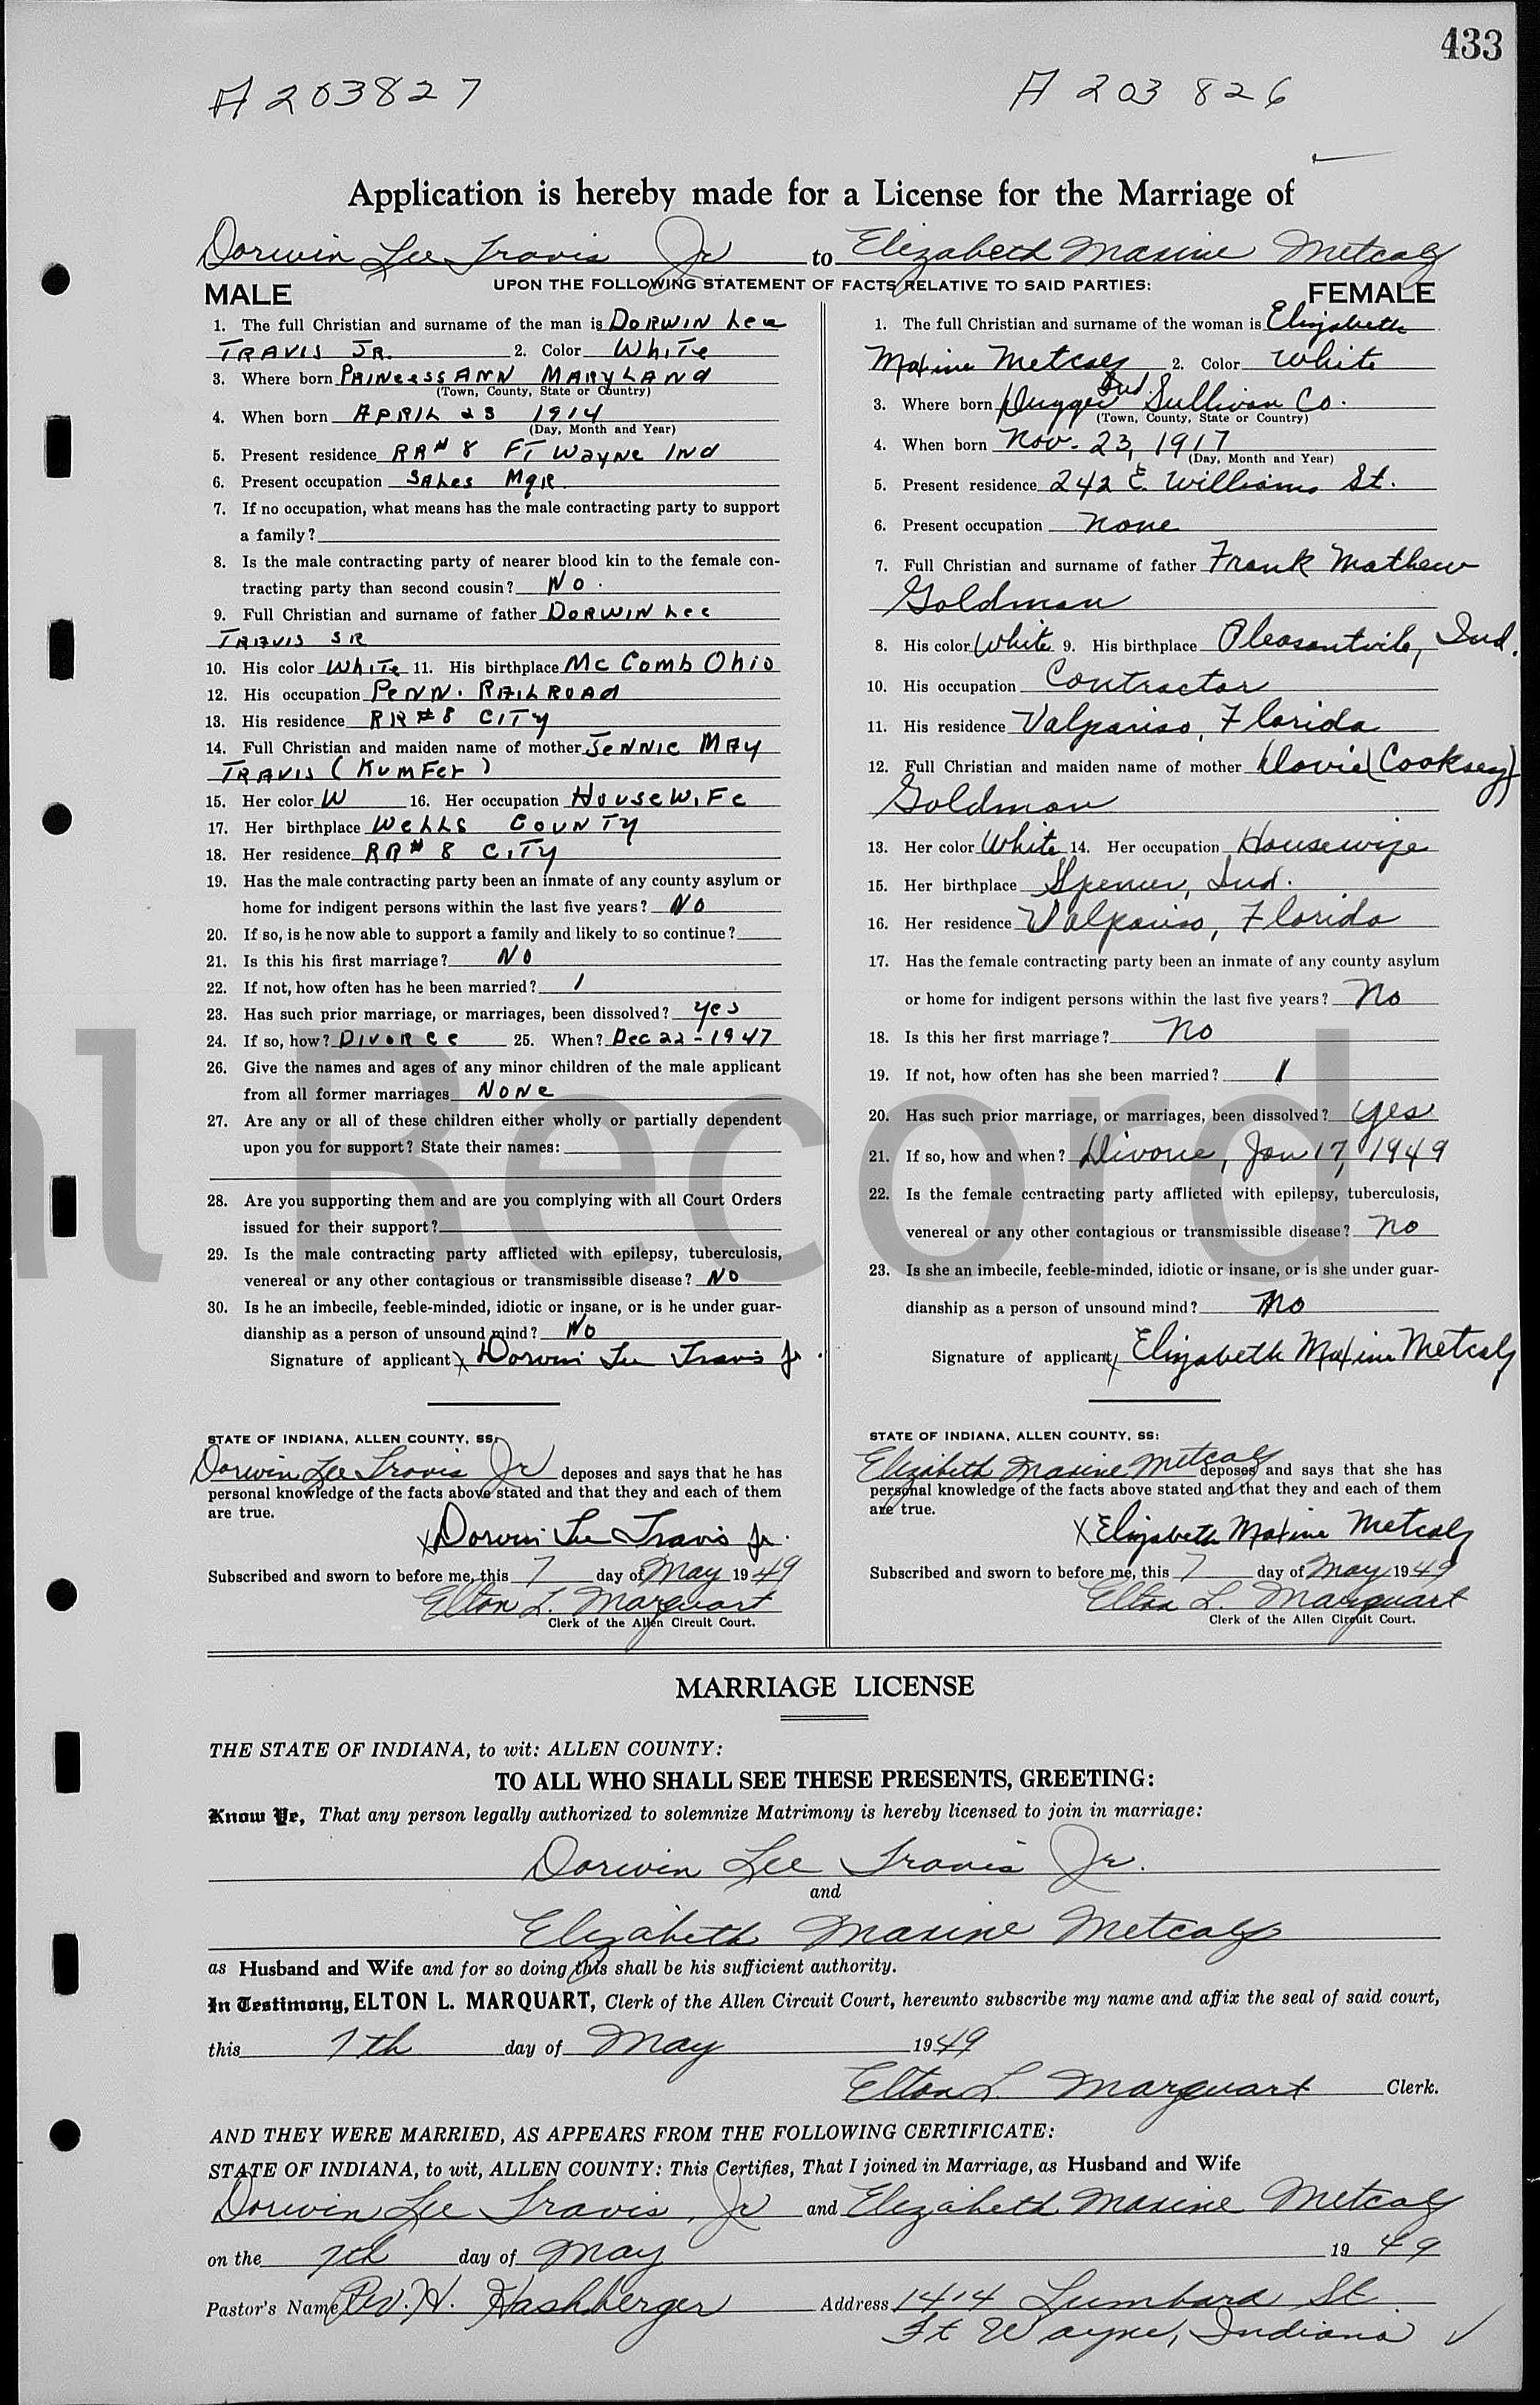 433
A 203827
A 203 826
Application is hereby made for a License for the Marriage of
Dorwin Lee Travis Jr to Elizabeth Maxine Metcalf
UPON THE FOLLOWING STATEMENT OF FACTS RELATIVE TO SAID PARTIES:
MALE
1. The full Christian and surname of the man is DORWIN Lee
TRAVIS JR. 2. Color White
3. Where born PRINCESS ANN MARYLAND
(Town, County, State or Country)
4. When born APRIL 23 1914
(Day, Month and Year)
5. Present residence RR# 8 FT WAYNE IND
6. Present occupation SALES MGR.
7. If no occupation, what means has the male contracting party to support
a family?
8. Is the male contracting party of nearer blood kin to the female con-
tracting party than second cousin? No.
9. Full Christian and surname of father DORWIN Lee
TRAVIS SR
10. His color White 11. His birthplace Mc Comb Ohio
12. His occupation PENN. RAILROAD
13. His residence RR#8 CITY
14. Full Christian and maiden name of mother JENNIE MAY
TRAVIS (KUMFER)
15. Her color W 16. Her occupation HOUSEWIFE
17. Her birthplace WELLS COUNTY
18. Her residence RR# 8 CITY
19. Has the male contracting party been an inmate of any county asylum or
home for indigent persons within the last five years? NO
20. If so, is he now able to support a family and likely to so continue?
21. Is this his first marriage? NO
22. If not, how often has he been married? 1
23. Has such prior marriage, or marriages, been dissolved? yes
24. If so, how? DIVORCE 25. When? Dec 22-1947
26. Give the names and ages of any minor children of the male applicant
from all former marriages NONE
27. Are any or all of these children either wholly or partially dependent
upon you for support? State their names:
28. Are you supporting them and are you complying with all Court Orders
issued for their support?
29. Is the male contracting party afflicted with epilepsy, tuberculosis,
venereal or any other contagious or transmissible disease? NO
30. Is he an imbecile, feeble-minded, idiotic or insane, or is he under guar-
dianship as a person of unsound mind? No
Signature of applicant x Dorwin Lee Travis Jr.
STATE OF INDIANA, ALLEN COUNTY, SS:
Dorwin Lee Travis Jr deposes and says that he has
personal knowledge of the facts above stated and that they and each of them
are true.
x Dorwin Lee Travis Jr.
Subscribed and sworn to before me, this 7 day of May 1949
Elton L. Marquart
Clerk of the Allen Circuit Court.
FEMALE
1. The full Christian and surname of the woman is Elizabeth
Maxine Metcalf 2. Color White
3. Where born Dugger Ind. Sullivan Co.
(Town, County, State or Country)
4. When born Nov. 23, 1917
(Day, Month and Year)
5. Present residence 242 E. Williams St.
6. Present occupation none
7. Full Christian and surname of father Frank Mathew
Goldman
8. His color White 9. His birthplace Pleasantville, Ind.
10. His occupation Contractor
11. His residence Valpariso, Florida
12. Full Christian and maiden name of mother Dovie (Cooksey)
Goldman
13. Her color White 14. Her occupation Housewife
15. Her birthplace Spencer, Ind.
16. Her residence Valpariso, Florida
17. Has the female contracting party been an inmate of any county asylum
or home for indigent persons within the last five years? No
18. Is this her first marriage? No
19. If not, how often has she been married? 1
20. Has such prior marriage, or marriages, been dissolved? yes
21. If so, how and when? Divorce, Jan 17, 1949
22. Is the female contracting party afflicted with epilepsy, tuberculosis,
venereal or any other contagious or transmissible disease? no
23. Is she an imbecile, feeble-minded, idiotic or insane, or is she under guar-
dianship as a person of unsound mind? no
Signature of applicant x Elizabeth Maxine Metcalf
STATE OF INDIANA, ALLEN COUNTY, SS:
Elizabeth Maxine Metcalf deposes and says that she has
personal knowledge of the facts above stated and that they and each of them
are true.
X Elizabeth Maxine Metcalf
Subscribed and sworn to before me, this 7 day of May 1949
Elton L. Marquart
Clerk of the Allen Circuit Court.
MARRIAGE LICENSE
THE STATE OF INDIANA, to wit: ALLEN COUNTY:
TO ALL WHO SHALL SEE THESE PRESENTS, GREETING:
Know Ye, That any person legally authorized to solemnize Matrimony is hereby licensed to join in marriage:
Dorwin Lee Travis Jr.
and
Elizabeth Maxine Metcalf
as Husband and Wife and for so doing this shall be his sufficient authority.
In Testimony, ELTON L. MARQUART, Clerk of the Allen Circuit Court, hereunto subscribe my name and affix the seal of said court,
this 7th day of May 1949
Elton L. Marquart Clerk.
AND THEY WERE MARRIED, AS APPEARS FROM THE FOLLOWING CERTIFICATE:
STATE OF INDIANA, to wit, ALLEN COUNTY: This Certifies, That I joined in Marriage, as Husband and Wife
Dorwin Lee Travis, Jr and Elizabeth Maxine Metcalf
on the 7th day of May 1949
Pastor's Name Rev. H. Hashberger Address 1414 Lumbard St.
Ft Wayne, Indiana
l Record